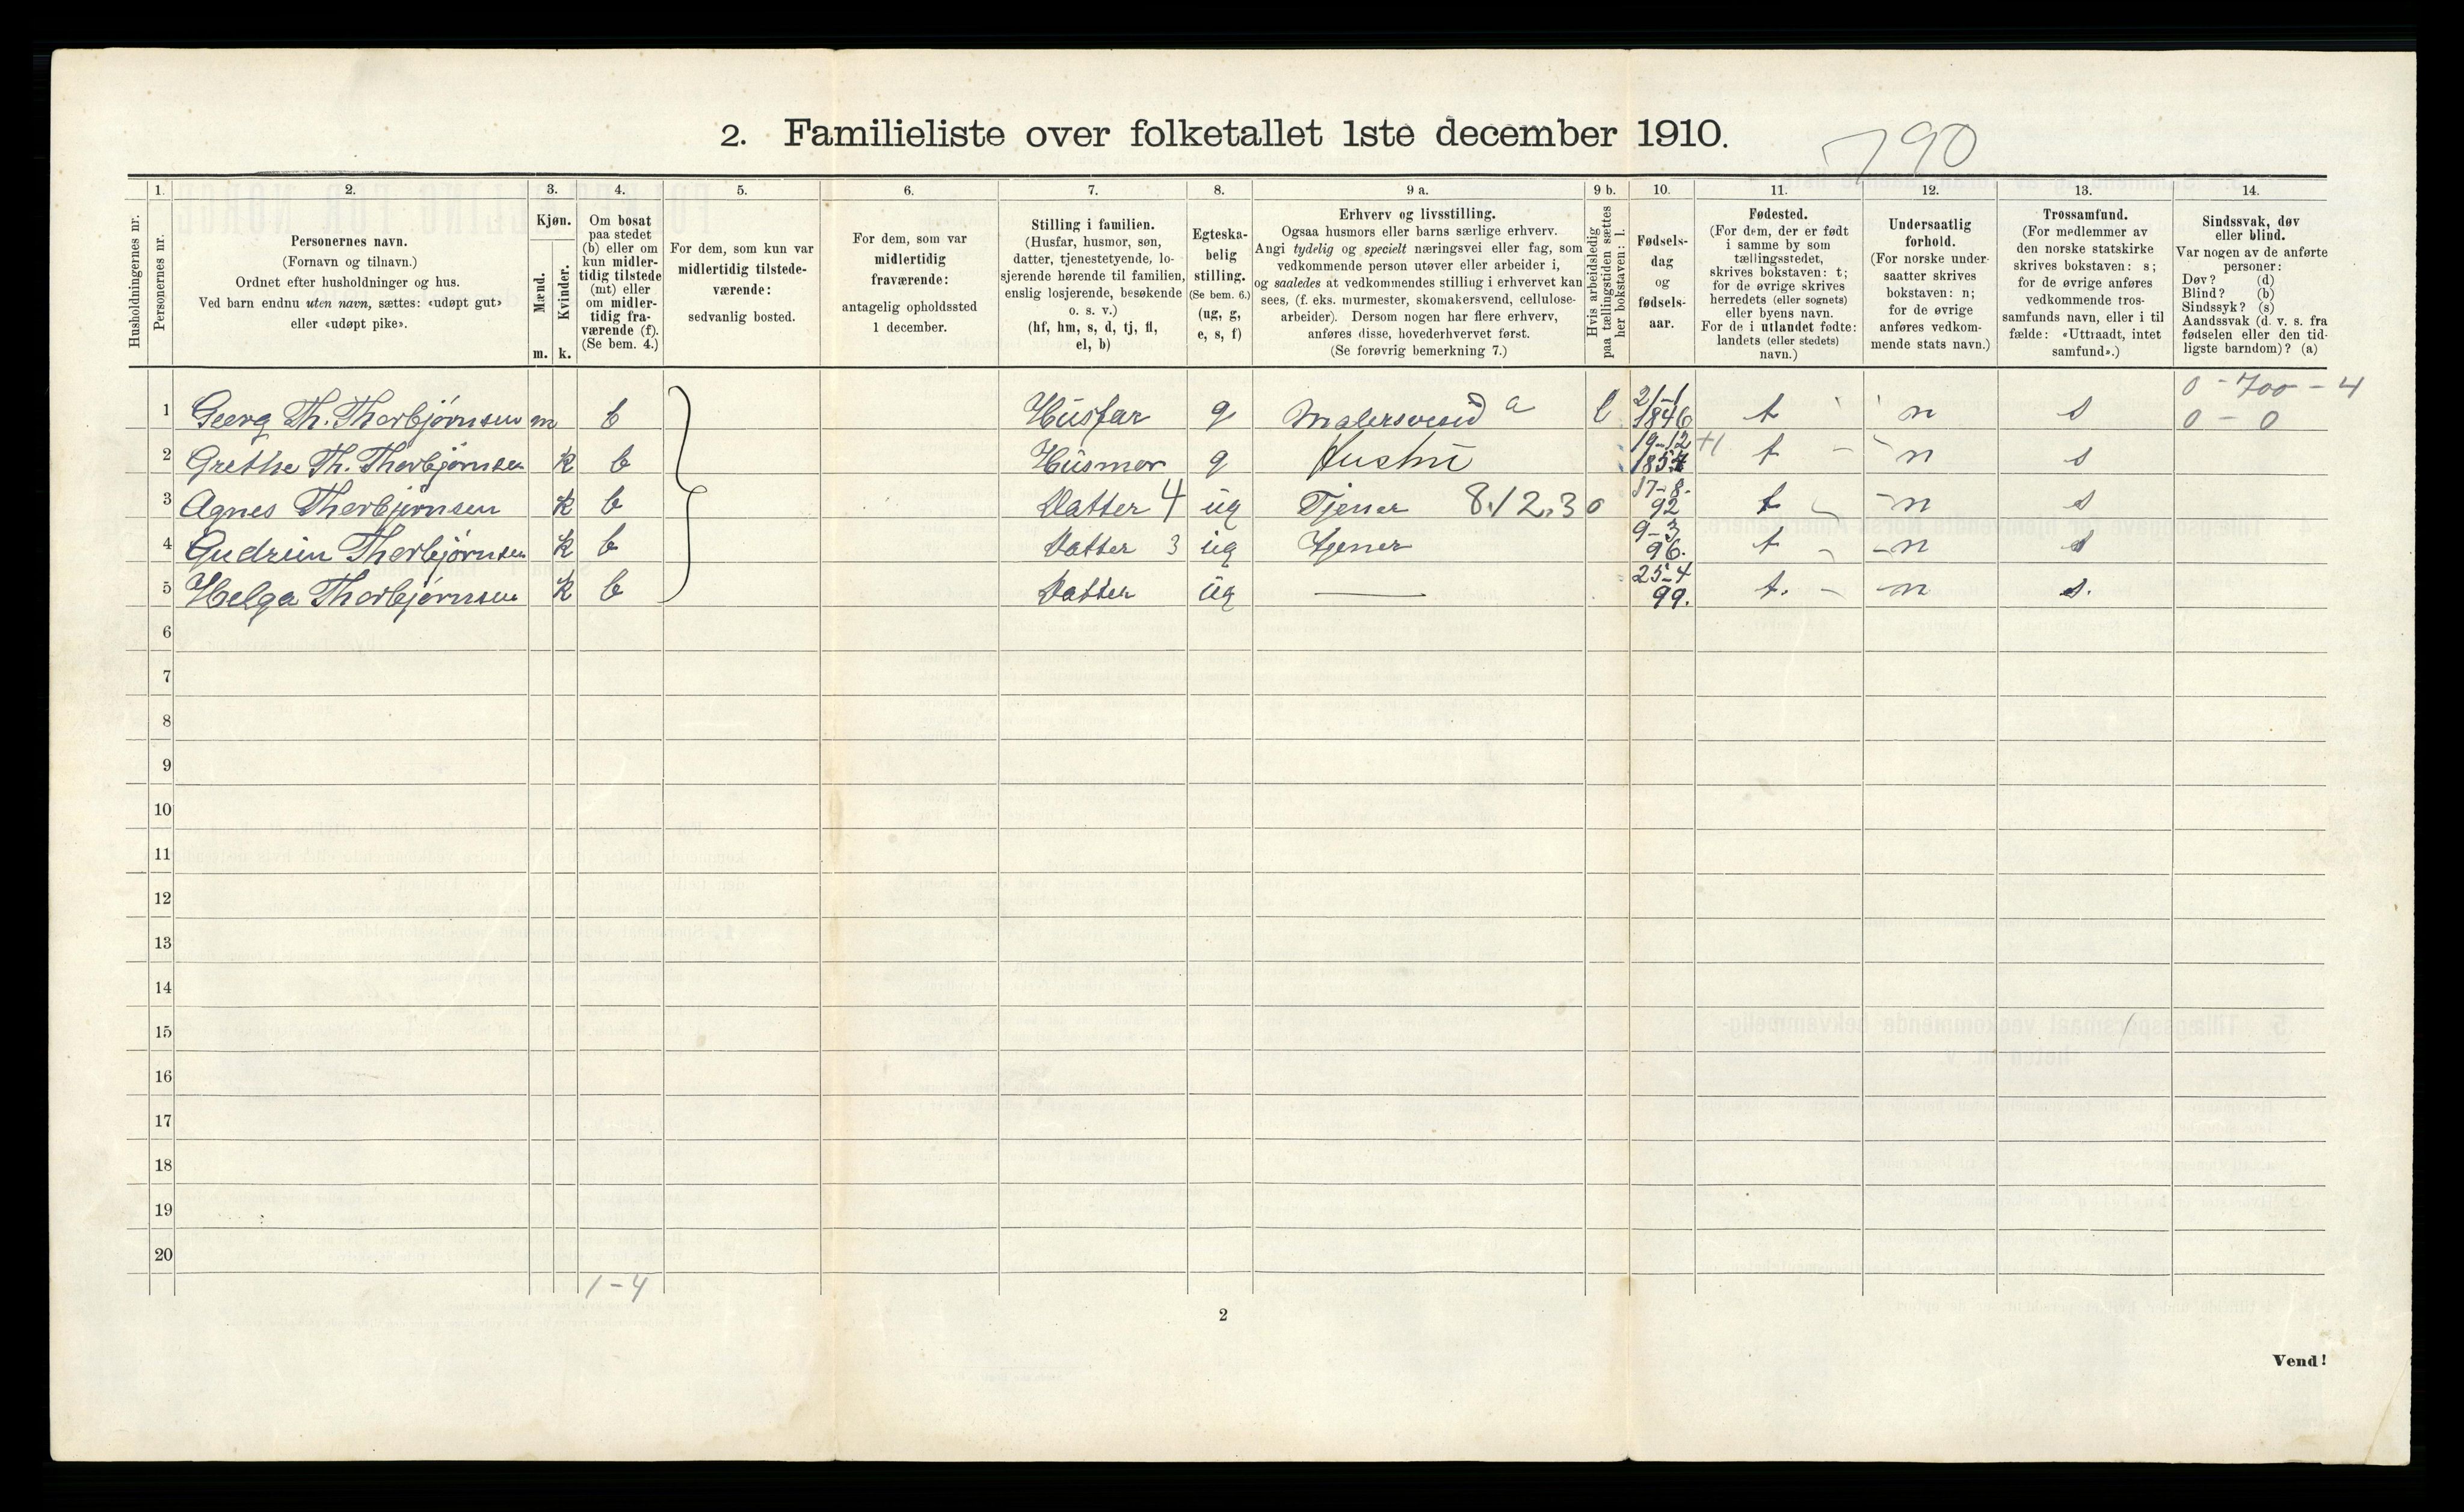 2. Familieliste over folketallet 1ste december 1910.
790
1. 2. 3. 4. 5. 6. 7. 8. 9 a. 9 b. 10. 11. 12. 13. 14.
Husholdningernes nr.
Personernes nr.
Personernes navn.
(Fornavn og tilnavn.)
Ordnet efter husholdninger og hus.
Ved barn endnu uten navn, sættes: «udøpt gut»
eller «udøpt pike».
Kjøn.
Mænd.
Kvinder.
m. k.
Om bosat
paa stedet
(b) eller om
kun midler-
tidig tilstede
(mt) eller
om midler-
tidig fra-
værende (f).
(Se bem. 4.)
For dem, som kun var
midlertidig tilstede-
værende:
sedvanlig bosted.
For dem, som var
midlertidig
fraværende:
antagelig opholdssted
1 december.
Stilling i familien.
(Husfar, husmor, søn,
datter, tjenestetyende, lo-
sjerende hørende til familien,
enslig losjerende, besøkende
o. s. v.)
(hf, hm, s, d, tj, fl,
el, b)
Egteska-
belig
stilling.
(Se bem. 6.)
(ug, g,
e, s, f)
Erhverv og livsstilling.
Ogsaa husmors eller barns særlige erhverv.
Angi tydelig og specielt næringsvei eller fag, som
vedkommende person utøver eller arbeider i,
og saaledes at vedkommendes stilling i erhvervet kan
sees, (f. eks. murmester, skomakersvend, cellulose-
arbeider). Dersom nogen har flere erhverv,
anføres disse, hovederhvervet først.
(Se forøvrig bemerkning 7.)
Hvis arbeidsledig
paa tællingstiden sættes
her bokstaven: l.
Fødsels-
dag
og
fødsels-
aar.
Fødested.
(For dem, der er født
i samme by som
tællingsstedet,
skrives bokstaven: t;
for de øvrige skrives
herredets (eller sognets)
eller byens navn.
For de i utlandet fødte:
landets (eller stedets)
navn.)
Undersaatlig
forhold.
(For norske under-
saatter skrives
bokstaven: n;
for de øvrige
anføres vedkom-
mende stats navn.)
Trossamfund.
(For medlemmer av
den norske statskirke
skrives bokstaven: s;
for de øvrige anføres
vedkommende tros-
samfunds navn, eller i til
fælde: «Uttraadt, intet
samfund».)
Sindssvak, døv
eller blind.
Var nogen av de anførte
personer:
Døv? (d)
Blind? (b)
Sindssyk? (s)
Aandssvak (d. v. s. fra
fødselen eller den tid-
ligste barndom)? (a)
0 - 700 - 4
1 Georg Th. Thorbjørnsen m b Husfar g Malersvend a l 21-1 1846 t n s 0 - 0
2 Grethe Th. Thorbjørnsen k b Husmor g Hustru 19-12 1857 +1 t - n s
3 Agnes Thorbjørnsen k b Datter 4 ug Tjener 8.12.30 17-8- 92 t - n s
4 Gudrun Thorbjørnsen k b Datter 3 ug Tjener 9-3 96. t - n s
5 Helga Thorbjørnsen k b Datter ug — 25-4 99. t. - n s.
6
7
8
9
10
11
12
13
14
15
16
17
18
19
20
1-4
2
Vend!